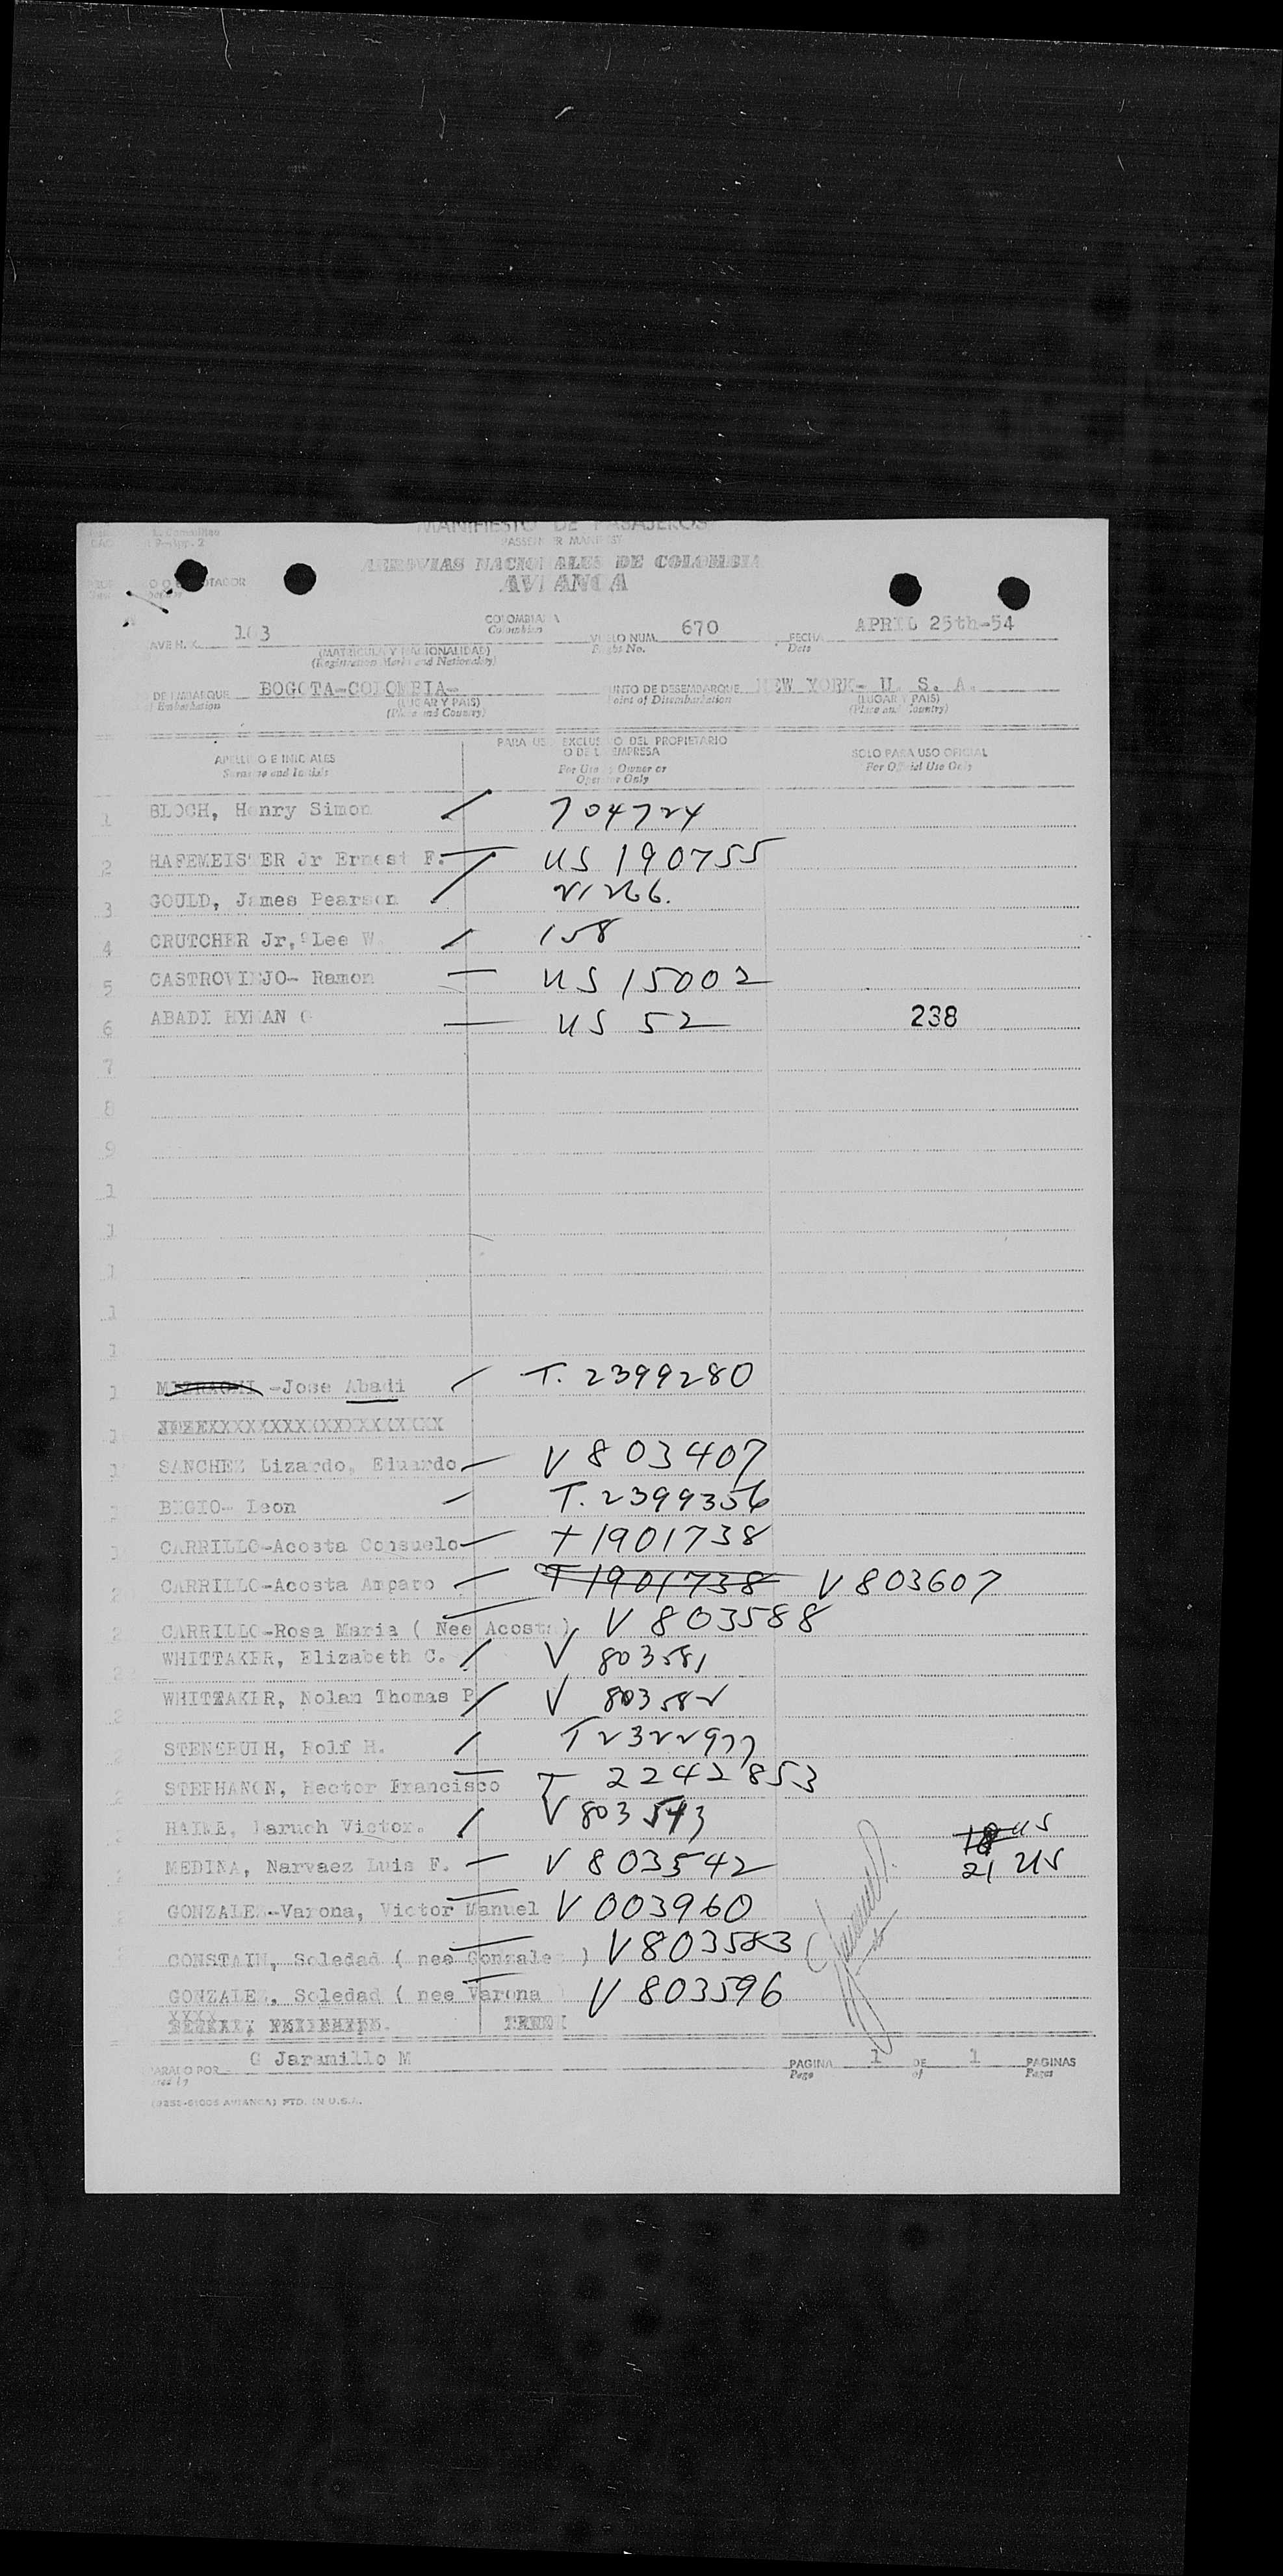 MANIFIESTO DE PASAJEROS
PASSENGER MANIFEST
AEROVIAS NACIONALES DE COLOMBIA
AVIANCA
AVE N.X. 103 COLOMBIANA VUELO NUM. 670 FECHA APRIL 25th-54
Colombian Flight No. Date
(MATRICULA Y NACIONALIDAD)
(Registration Marks and Nationality)
DE EMBARQUE BOGOTA-COLOMBIA- PUNTO DE DESEMBARQUE NEW YORK- U. S. A.
of Embarkation (LUGAR Y PAIS) Points of Disembarkation (LUGAR Y PAIS)
(Place and Country) (Place and Country)
APELLIDO E INICIALES PARA USO EXCLUSIVO DEL PROPIETARIO SOLO PARA USO OFICIAL
Surname and Initials O DE LA EMPRESA For Official Use Only
For Use by Owner or
Operator Only
1 BLOCH, Henry Simon 704724
2 HAFEMEISTER Jr Ernest F. US 190755
3 GOULD, James Pearson 21266.
4 CRUTCHER Jr, Lee W. 158
5 CASTROVIEJO- Ramon US 15002
6 ABADI HYMAN US 52 238
7
8
9
1
1
1
1
1
1 -Jose Abadi T. 2399280
1
1 SANCHEZ Lizardo, Eduardo V 803407
BIGIO- Leon T. 2399356
1 CARRILLO-Acosta Consuelo T 1901738
2 CARRILLO-Acosta Amparo T 1901738 V 803607
2 CARRILLO-Rosa Maria ( Nee Acosta) V 803588
WHITTAKER, Elizabeth C. V 803581
WHITTAKER, Nolan Thomas P V 803582
Rolf H. T 2322977
STEPHANON, Hector Francisco T 2242853
Baruch Victor. V 803543 18 US
MEDINA, Narvaez Luis F. V 803542 21 US
GONZALEZ-Varona, Victor Manuel V 003960
CONSTAIN, Soledad ( nee Gonzalez ) V 803583
GONZALEZ, Soledad ( nee Varona V 803596
G Jaramillo M PAGINA 1 DE 1 PAGINAS
Page of Pages
AVIANCA) PTD. IN U.S.A.